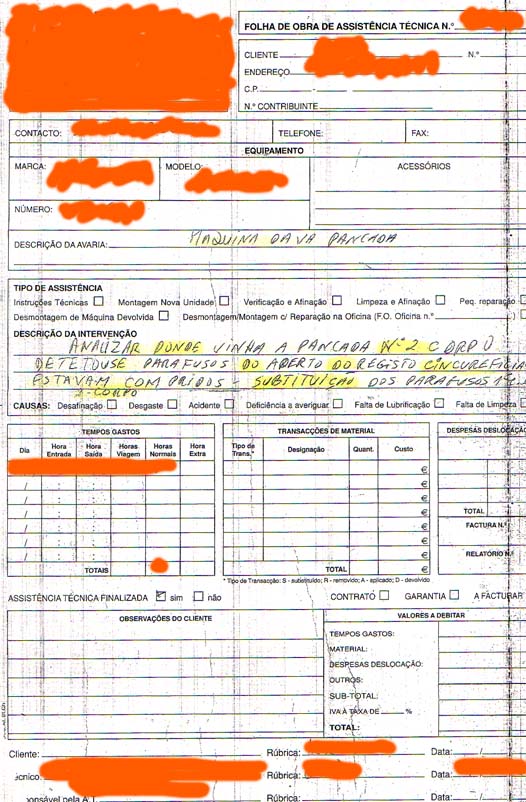 FOLHA DE OBRA DE ASSISTÊNCIA TÉCNICA N.º
CLIENTE N.º
ENDEREÇO
C.P. -
N.º CONTRIBUINTE
CONTACTO: TELEFONE: FAX:
EQUIPAMENTO
MARCA: MODELO: ACESSÓRIOS
NÚMERO:
DESCRIÇÃO DA AVARIA: MAQUINA DAVA PANCADA
TIPO DE ASSISTÊNCIA
Instruções Técnicas Montagem Nova Unidade Verificação e Afinação Limpeza e Afinação Peq. reparação
Desmontagem de Máquina Devolvida Desmontagem/Montagem c/ Reparação na Oficina (F.O. Oficina n.º
DESCRIÇÃO DA INTERVENÇÃO
ANALIZAR DONDE VINHA A PANCADA Nº2 CORPO
DETETOUSE PARAFUSOS DO APERTO DO REGISTO
ESTAVAM COM PRIDOS - SUBSTITUIÇÃO DOS PARAFUSOS
2-CORPO
CAUSAS: Desafinação Desgaste Acidente Deficiência a averiguar Falta de Lubrificação Falta de Limpeza
TEMPOS GASTOS TRANSACÇÕES DE MATERIAL DESPESAS DESLOCAÇ
Dia Hora Entrada Hora Saída Horas Viagem Horas Normais Hora Extra Tipo de Trans.* Designação Quant. Custo
€
/ : : €
/ : : €
/ : : €
/ : : €
/ : : €
TOTAL
FACTURA N.º
RELATÓRIO N.º
TOTAIS TOTAL €
* Tipo de Transacção: S - substituído; R - removido; A - aplicado; D - devolvido
ASSISTÊNCIA TÉCNICA FINALIZADA sim não CONTRATO GARANTIA A FACTURAR
OBSERVAÇÕES DO CLIENTE VALORES A DEBITAR
TEMPOS GASTOS:
MATERIAL:
DESPESAS DESLOCAÇÃO:
OUTROS:
SUB-TOTAL:
IVA À TAXA DE %
TOTAL:
Cliente: Rúbrica: Data: /
écnico: Rúbrica: Data:
ponsável pela A.T. Rúbrica: Data: /